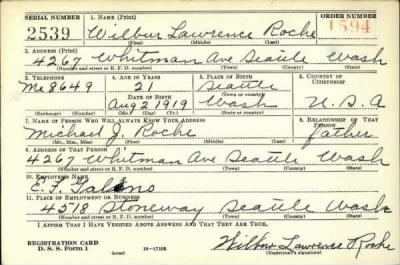 SERIAL NUMBER 1. NAME (Print) ORDER NUMBER
2539 Wilbur Lawrence Roche 1594
(First) (Middle) (Last)
2. ADDRESS (Print)
4267 Whitman Ave Seattle Wash
(Number and street or R. F. D. number) (Town) (County) (State)
3. TELEPHONE 4. AGE IN YEARS 5. PLACE OF BIRTH 6. COUNTRY OF CITIZENSHIP
Me 8649 21 Seattle
DATE OF BIRTH
Aug 2 1919 Wash U.S.A
(Exchange) (Number) (Mo.) (Day) (Yr.) (State or country)
7. NAME OF PERSON WHO WILL ALWAYS KNOW YOUR ADDRESS 8. RELATIONSHIP OF THAT PERSON
Michael J. Roche father
(Mr., Mrs., Miss) (First) (Middle) (Last)
9. ADDRESS OF THAT PERSON
4267 Whitman Ave Seattle Wash
(Number and street or R. F. D. number) (Town) (County) (State)
10. EMPLOYER'S NAME
E. F.
11. PLACE OF EMPLOYMENT OR BUSINESS
4518 Stoneway Seattle Wash
(Number and street or R. F. D. number) (Town) (County) (State)
I AFFIRM THAT I HAVE VERIFIED ABOVE ANSWERS AND THAT THEY ARE TRUE.
REGISTRATION CARD
D. S. S. Form 1 (over) 16-17105 Wilbur Lawrence Roche
(Registrant's signature)